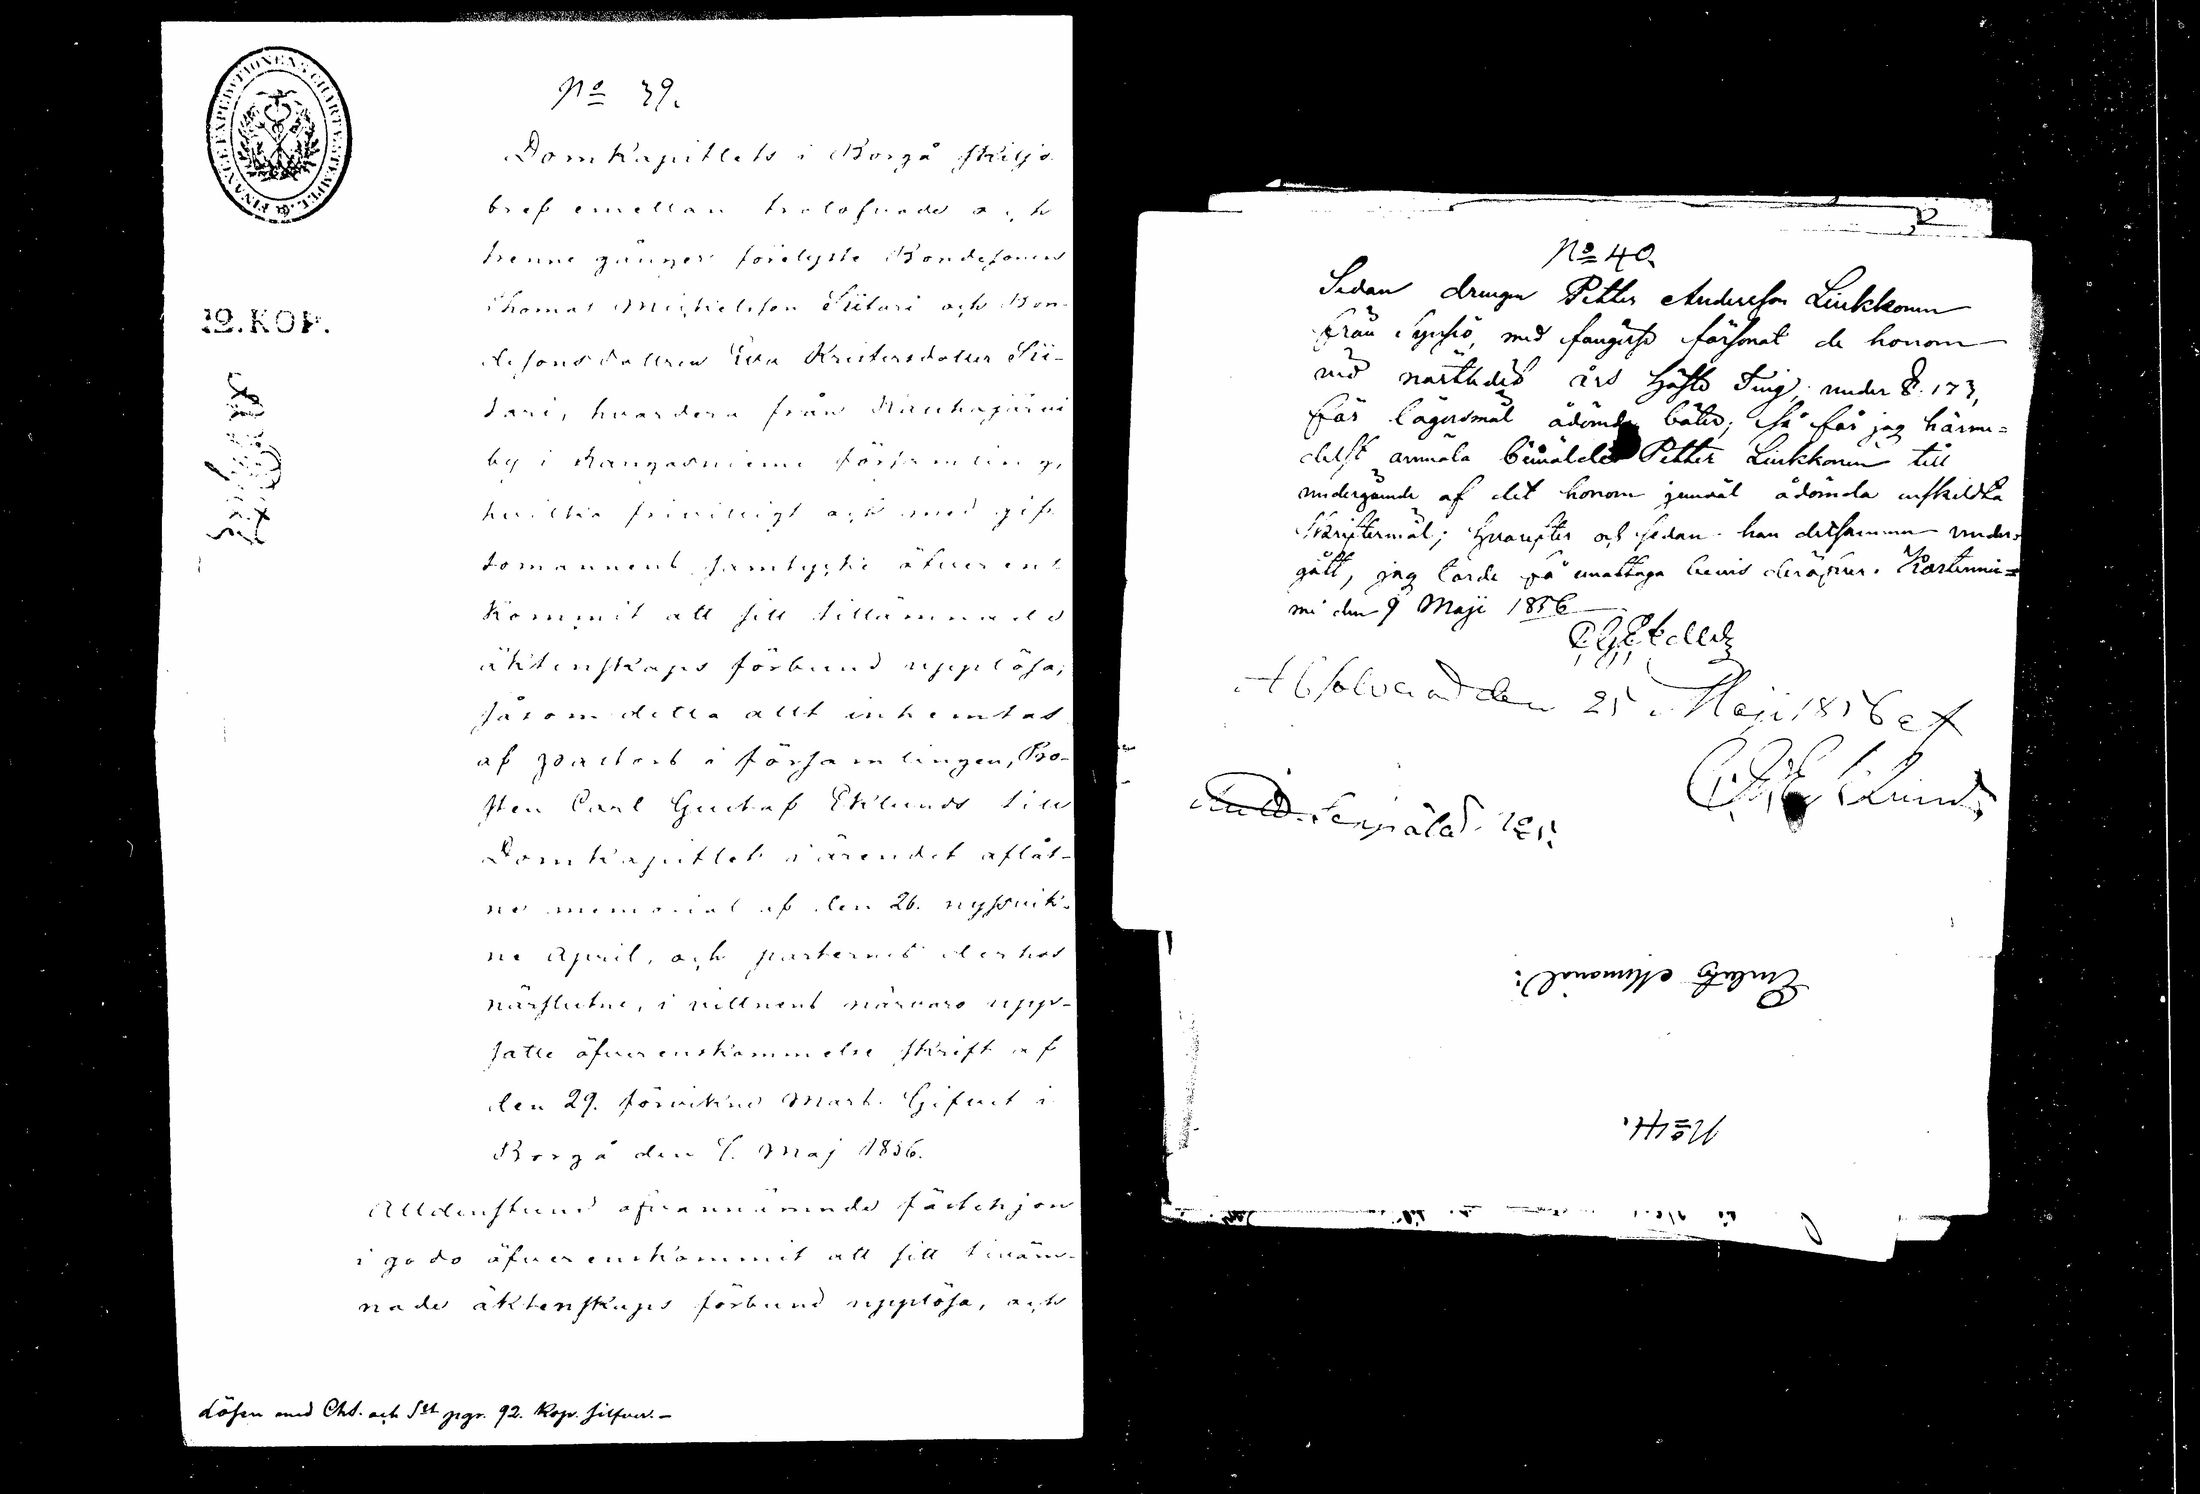 FINANCE EXPEDITIONENS CHARTE STEMPEL
12. KOP.
No 39.
Domkapitlets i Borgå skiljo-
bref emellan trolofvade och
trenne gånger förelyste Bondesonen
Thomas Michelsson Siitari och Bon-
desonsdottren Eva Kristersdotter Sii-
tari, hvardera från Räuhäjärvi
by i Kangasniemi församling,
hvilka frivilligt och med gif-
tomannens samtycke öfverens
kommit att sitt tillämnade
äktenskaps förbund upplösa;
såsom detta allt inhemtas
af pastors i församlingen, Pro-
sten Carl Gustaf Eklunds till
Domkapitlet i ärendet aflåt-
ne memorial af den 26. nyssvik-
ne April, och parternes derhos
närslutne, i vittnens närvaro upp-
satte öfverenskommelse skrift af
den 29. förvikne Mart. Gifvet i
Borgå den 7. Maj 1856.
Alldenstund ofvannämnde fästehjon
i godo öfverenskommit att sitt tiläm-
nade äktenskaps förbund upplösa, och
Lösen med Cht. och Stt pgr. 92. Kop. silfver.-
No 40.
Sedan drengen Petter Andersson Liukkonen
från Synsiö, med fängelse försonat de honom
vid nästledit års Höste Ting, under §. 173,
för lägersmål ådömde böter; så får jag härme-
delst anmäla bemälde Petter Liukkonen till
undergående af det honom jemväl ådömda enskildta
Skriftermål; hvarefter och sedan han detsamma under-
gått, jag torde få emottaga bevis deröfver. Kortennie-
mi den 9 Maji 1856
Absolverad den 25 Maji 1856 af
C. G. Eklund
Embets Memorial:
No 41.